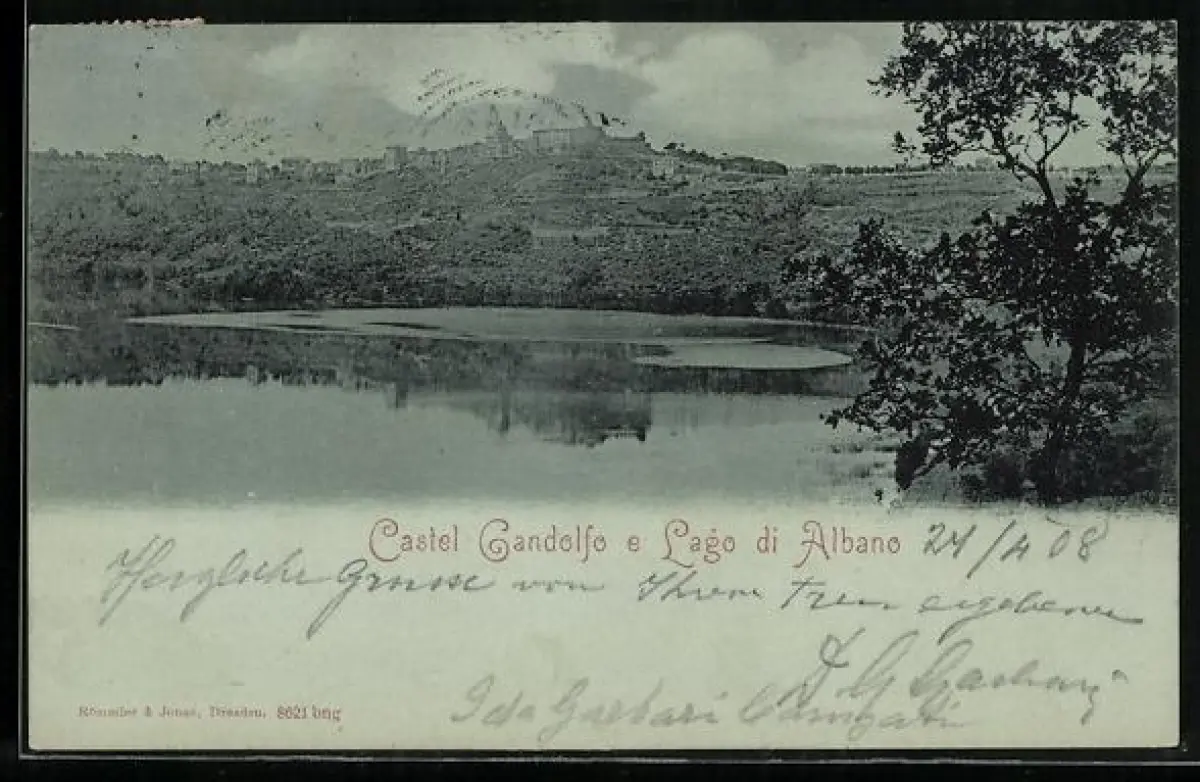 Castel Gandolfo e Lago di Albano 24/4 08
Herzliche Grüsse von Ihrem treu ergebenen
Dr G
Ida
Römmler & Jonas, Dresden. 8621 bng